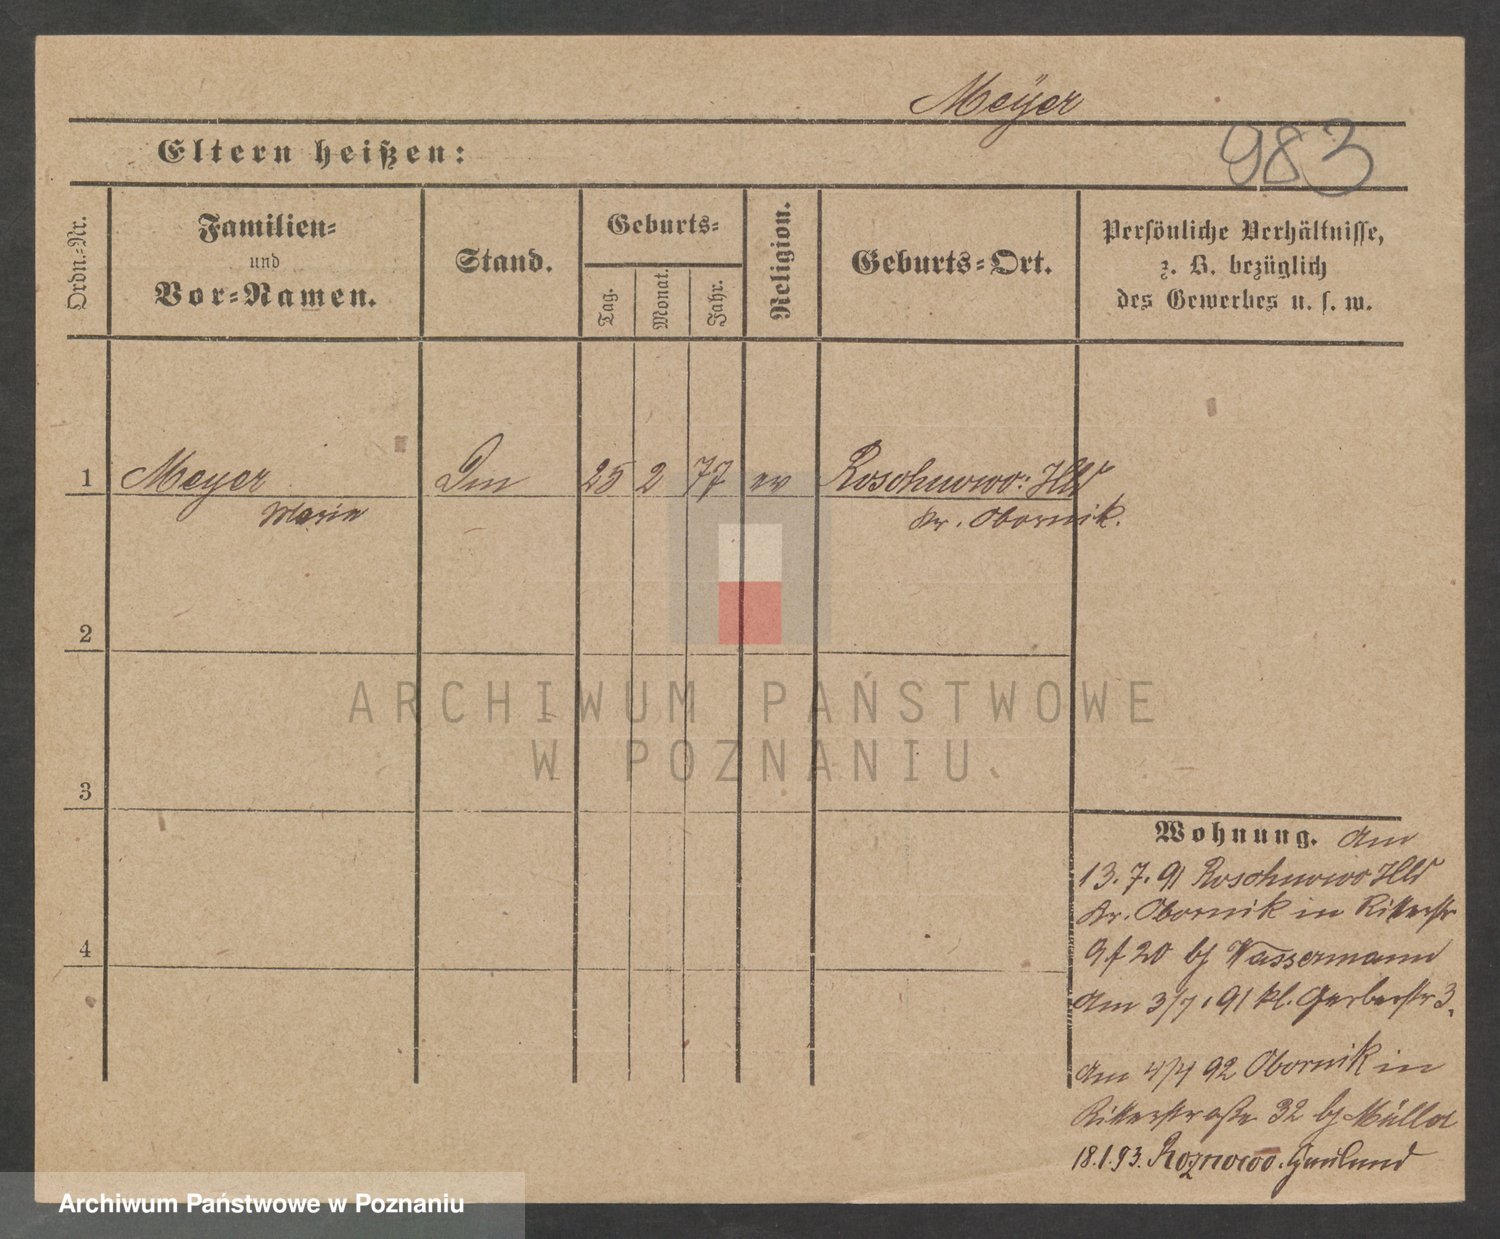 Meÿer
983
Eltern heißen:
Ordn.-Nr.
Familien-
und
Vor-Namen.
Stand.
Geburts-
Tag.
Monat.
Jahr.
Religion.
Geburts-Ort.
Persönliche Verhältnisse,
z. B. bezüglich
des Gewerbes u. s. w.
1 Meyer 25 2 77 ev Roschnowo: Hld
Marie Kr. Obornik.
2
3
4
ARCHIWUM PAŃSTWOWE
W POZNANIU
Wohnung. Am
13.7.91 Roschnowo Hld
Kr. Obornik in Ritterstr
20 bj Wassermann
Am 3/7.91 kl. Gerberstr 3.
Am 4/4 92 Obornik in
Ritterstraße 32 bj Müller
18.1.93. Roznowo. Hauland
Archiwum Państwowe w Poznaniu